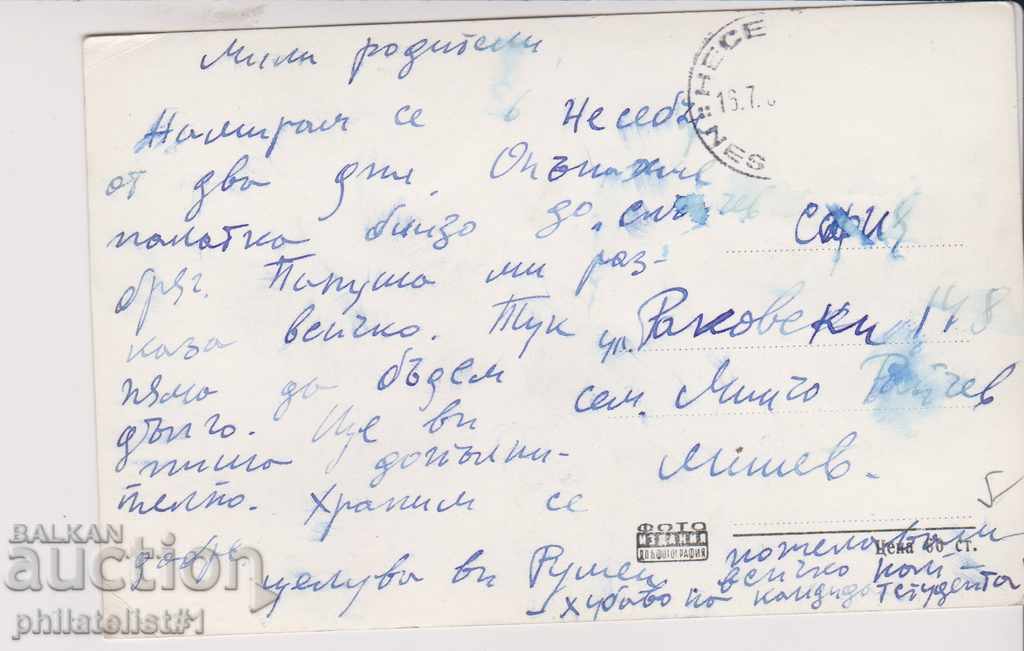 Мили родители
Намирам се в Несебър
от два дни. Опънахме
палатка близо до „Слънчев
бряг. Папуша ми раз-
каза всичко. Тук
няма да бъдем
дълго. Ще ви
пиша допълни-
телно. Храним се
добре
целува ви Румен
пожелавам
всичко най-
хубаво на кандидатстудента
НЕСЕ
16.7.
NES
София
ул. Раковски 148
сем. Минчо Райчев
Мишев.
ФОТО
ИЗДАНИЯ
ДП ФОТОГРАФИЯ
Цена 60 ст.
BALKAN
auction
philatelist#1